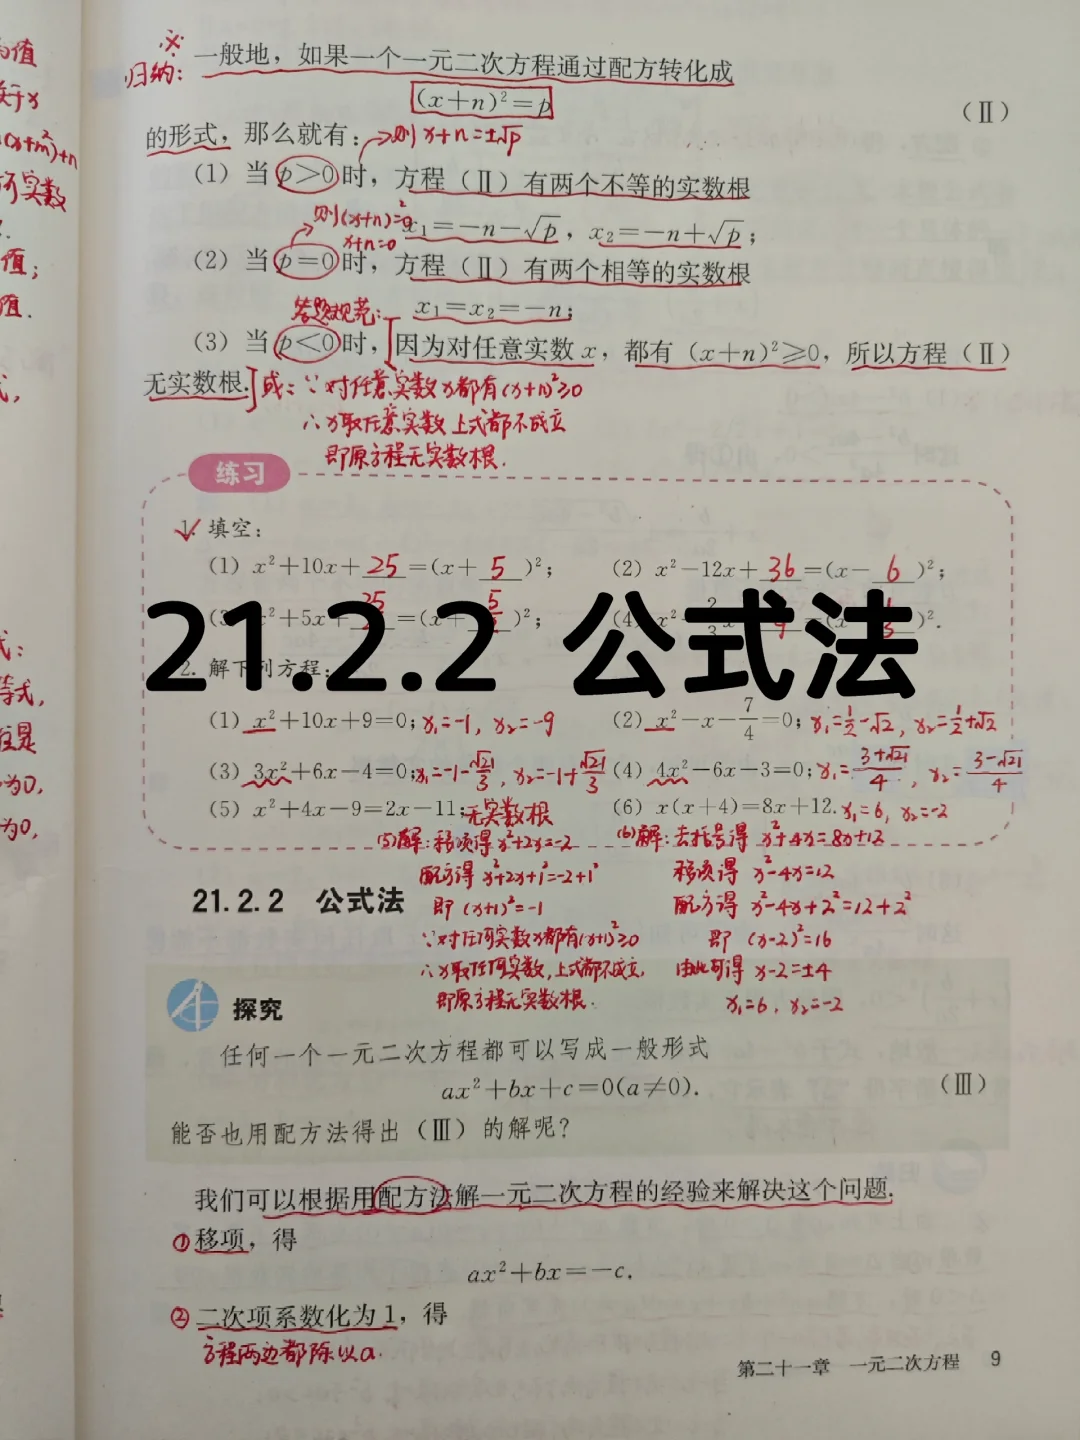 ※
归纳：一般地，如果一个一元二次方程通过配方转化成
(x+n)²=p （Ⅱ）
的形式，那么就有：→则x+n=±√p
（1）当p>0时，方程（Ⅱ）有两个不等的实数根
则(x+n)²=0 x₁=-n-√p，x₂=-n+√p；
x+n=0
（2）当p=0时，方程（Ⅱ）有两个相等的实数根
答题规范： x₁=x₂=-n；
（3）当p<0时，因为对任意实数x，都有(x+n)²≥0，所以方程（Ⅱ）
无实数根. 或：∵对任意实数x都有(x+n)²≥0
∴x取任意实数上式都不成立
即原方程无实数根.
练习
1. 填空：
（1）x²+10x+25=(x+5)²； （2）x²-12x+36=(x-6)²；
21.2.2 公式法
2. 解下列方程：
（1）x²+10x+9=0；x₁=-1，x₂=-9 （2）x²-x-7/4=0；x₁=1/2-√2，x₂=1/2+√2
（3）3x²+6x-4=0；x₁=-1-√21/3，x₂=-1+√21/3 （4）4x²-6x-3=0；x₁=(3+√21)/4，x₂=(3-√21)/4
（5）x²+4x-9=2x-11；无实数根 （6）x(x+4)=8x+12. x₁=6，x₂=-2
(5)解：移项得 x²+2x=-2 (6)解：去括号得 x²+4x=8x+12
配方得 x²+2x+1²=-2+1² 移项得 x²-4x=12
21.2.2 公式法 即 (x+1)²=-1 配方得 x²-4x+2²=12+2²
∵对任何实数x都有(x+1)²≥0 即 (x-2)²=16
∴x取任何实数，上式都不成立， 由此可得 x-2=±4
即原方程无实数根. x₁=6，x₂=-2
探究
任何一个一元二次方程都可以写成一般形式
ax²+bx+c=0(a≠0). （Ⅲ）
能否也用配方法得出（Ⅲ）的解呢？
我们可以根据用配方法解一元二次方程的经验来解决这个问题.
①移项，得
ax²+bx=-c.
②二次项系数化为1，得
方程两边都除以a.
第二十一章 一元二次方程 9